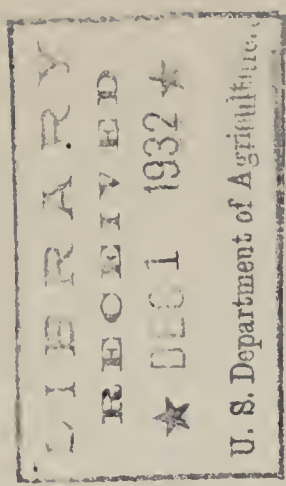 LIBRARY
RECEIVED
★ DEC 1 1932 ★
U. S. Department of Agriculture.